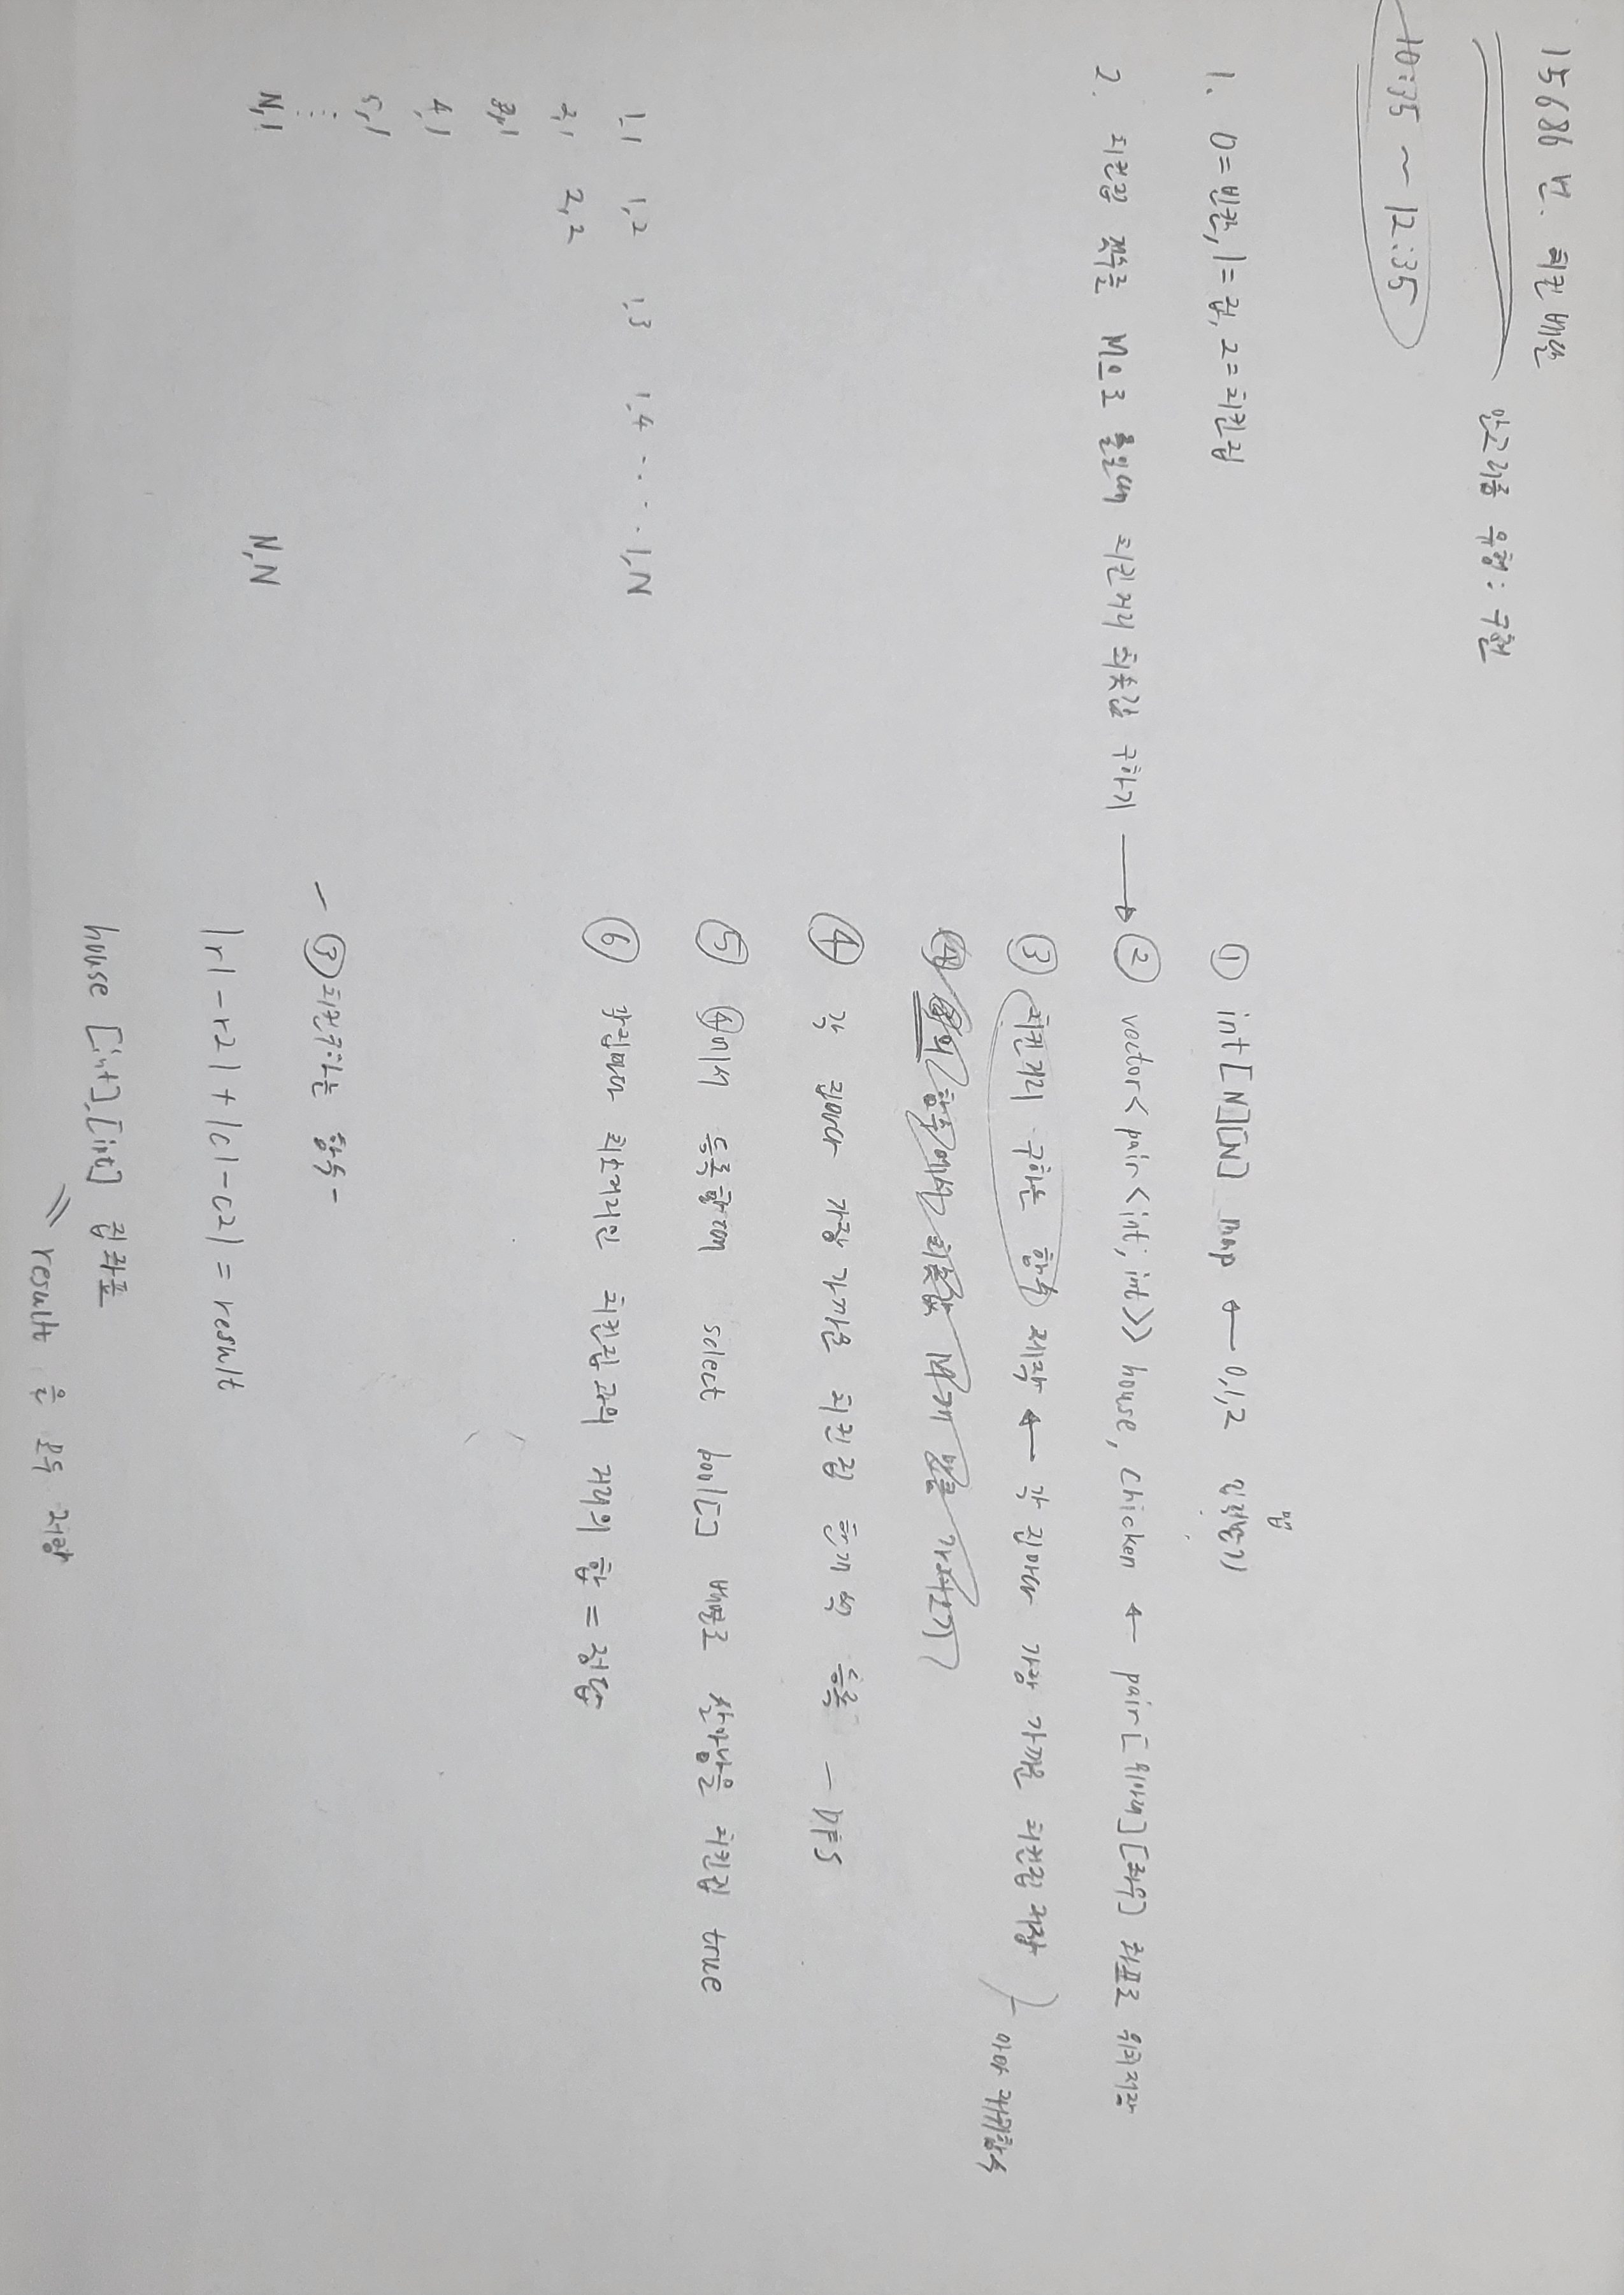 15686 번. 치킨 배달
알고리즘 유형: 구현
10:35 ~ 12:35
1. 0=빈칸, 1=집, 2=치킨집
2. 치킨집 갯수를 M으로 줄일때 치킨거리 최솟값 구하기 →
① int[N][N] map ← 0,1,2 입력받기
맵
② vector<pair<int,int>> house, chicken ← pair[위아래][좌우] 좌표로 위치저장
③ 치킨거리 구하는 함수 제작 ← 각 집마다 가장 가까운 치킨집 저장
아마 재귀함수
④ 각 집마다 가장 가까운 치킨집 한개씩 등록 - DFS
⑤ ④에서 등록할때 select bool[] 배열로 살아남을 치킨집 true
⑥ 각집마다 최소거리인 치킨집과의 거리의 합 = 정답
1,1 1,2 1,3 1,4 .... 1,N
2,1 2,2
3,1
4,1
5,1
⋮
N,1 N,N
- ③ 치킨구하는 함수 -
|r1-r2| + |c1-c2| = result
house [int],[int] 집좌표
result 을 모두 저장